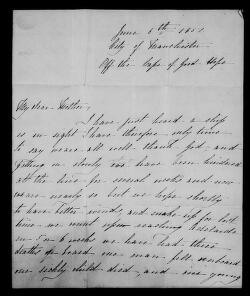 June 5th 1851
City of Manchester
Off the Cape of good Hope
My dear Mother,
I have just heard a ship
is in sight I have therefore only time
to say we are all well thank god and
getting on slowly we have been
at the line for several weeks and now
we are nearly so but we hope shortly
to have better winds, and make up for lost
time we must upon reaching
in 5 or 6 weeks we have had three
deaths on board one man fell overboard
one sickly child died, and one young